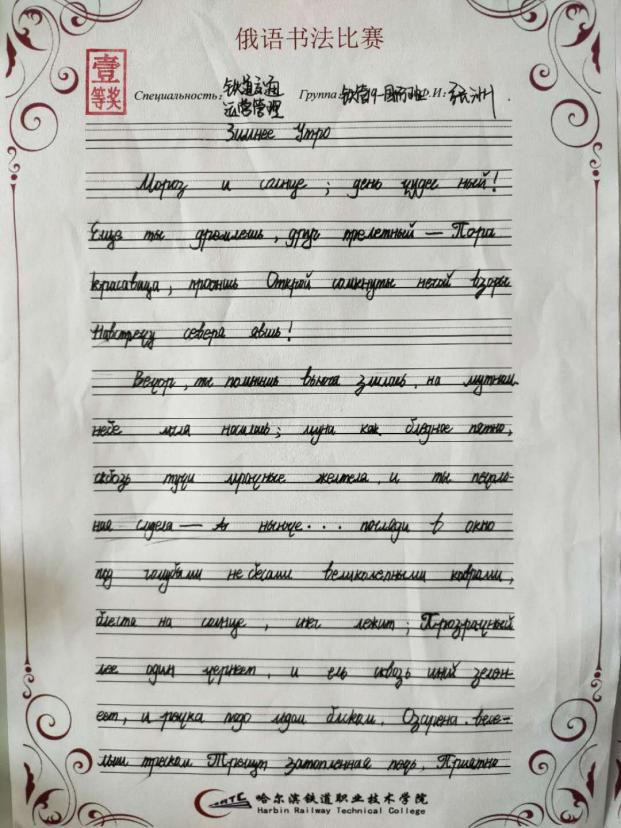 俄语书法比赛
壹等奖
Специальность: 铁道交通运营管理 Группа: 铁信19-国际班 Ф.И: 张洲.
Зимнее Утро
Мороз и солнце; день чудес ный!
Еще ты дремлешь, друг прелетный — Пора
красавица, проснись Открой сомкнуты негой взоры
Навстречу севера явись!
Вечор, ты помнишь вьюга злилась, на мутном
небе мгла носилась; луна как бледное пятно,
сквозь тучи мрачные желтела, и ты печаль-
ная сидела — А нынче... погляди в окно
под голубыми не бесами великолепными коврами,
блестя на солнце, снег лежит; Прозрачный
лес один чернеет, и ель сквозь иней зелен-
еет, и речка подо льдом блискам. Озарена. весе-
лым треском Трещит затопленная печь. Приятно
哈尔滨铁道职业技术学院
Harbin Railway Technical College